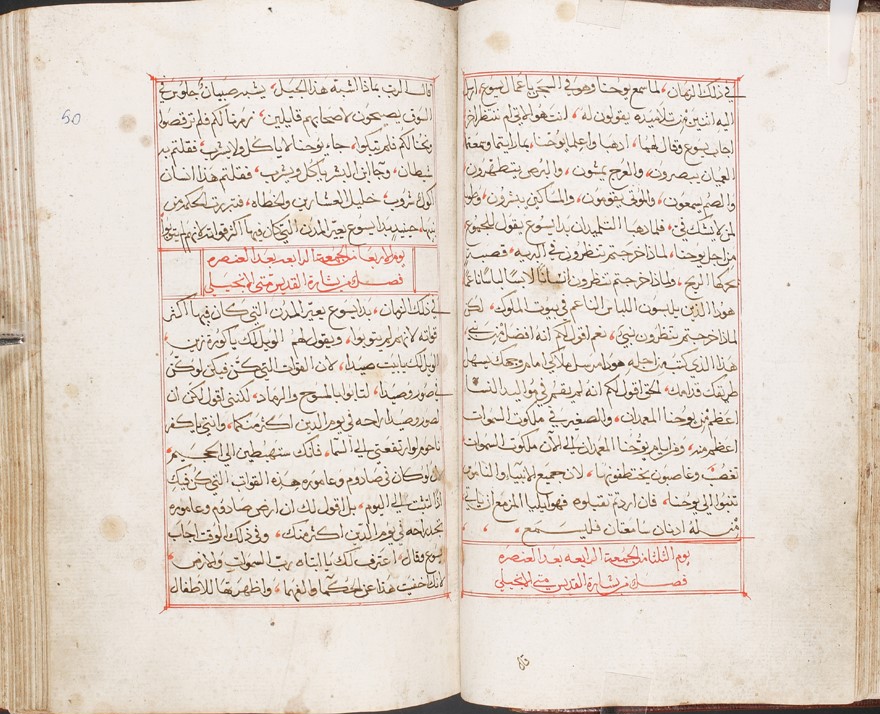 في ذلك الزمان، لما سمع يوحنا وهو في السجن باعمال يسوع ارسل
اليه اثنين من تلاميذه يقولون له، انت هو الاتي ام ننتظر اخر
اجاب يسوع وقال لهما، اذهبا واعلما يوحنا بما رايتما وسمعتما
العميان يبصرون، والعرج يمشون، والبرص يتطهرون
والصم يسمعون، والموتى يقومون، والمساكين يبشرون، وطوبا
لمن لا يشك في، فلما ذهبا التلميذان بدا يسوع يقول للجموع
من اجل يوحنا، لماذا خرجتم تنظرون في البريه، قصبه
تحركها الريح، ولماذا خرجتم تنظرون انسانا لابسا لباسا ناعما
هوذا الذين يلبسون اللباس الناعم في بيوت الملوك، لكن
لماذا خرجتم تنظرون نبي، نعم اقول لكم انه افضل من نبي
هذا الذي كتب من اجله هوذا مرسل ملاكي امام وجهك يسهل
طريقك قدامك، الحق اقول لكم انه لم يقم في مواليد النسا
اعظم من يوحنا المعمدان، والصغير في ملكوت السموات
اعظم منه، ومن ايام يوحنا المعمدان الى الان ملكوت السموات
تغصب وغاصبون يختطفونها، لان جميع الانبيا والناموس
تنبوا الى يوحنا، فان اردتم تقبلوه فهو ايليا المزمع ان ياتي
من له اذنان سامعتان فليسمع
يوم الثلثا من الجمعة الرابعه بعد العنصره
فصل من بشارة القديس متى الانجيلي
قال
50
قال الرب بماذا اشبه هذا الجيل، يشبه صبيان جلوس في
السوق يصيحون لاصحابهم قايلين، زمرنا لكم فلم ترقصوا
ونحنا لكم فلم تبكوا، جاء يوحنا لا ياكل ولا يشرب، فقلتم به
شيطان، وجا ابن البشر ياكل ويشرب، فقلتم هذا انسان
اكول شروب، خليل العشارين والخطاه، فتبررت الحكمه من
بنيها، حينيذ بدا يسوع يعير المدن التي كان فيها اكثر قواته لانهم لم يتوبوا
يوم الاربعا من الجمعة الرابعه بعد العنصره
فصل من بشارة القديس متى الانجيلي
في ذلك الزمان، بدا يسوع يعير المدن التي كان فيها اكثر
قواته لانهم لم يتوبوا، ويقول لهم الويل لك ياكورزين
الويل لك يابيت صيدا، لان القوات التي كن فيكن لو كن
في صور وصيدا، لتابوا بالمسوح والرماد، لكنني اقول لكن ان
لصور وصيدا راحه في يوم الدين اكثر منكما، وانتي ياكفر
ناحوم لو ارتفعتي الى السما، فانك ستهبطين الى الجحيم
لان لو كان في صادوم وعاموره هذه القوات التي كن فيك
اذا لثبتت الى اليوم، بل اقول لك ان ارض صادوم وعاموره
تجد راحه في يوم الدين اكثر منك، وفي ذلك الوقت اجاب
يسوع وقال، اعترف لك يا ابتاه رب السموات والارض
لانك اخفيت هذا عن الحكما والفهما، واظهرتها للاطفال